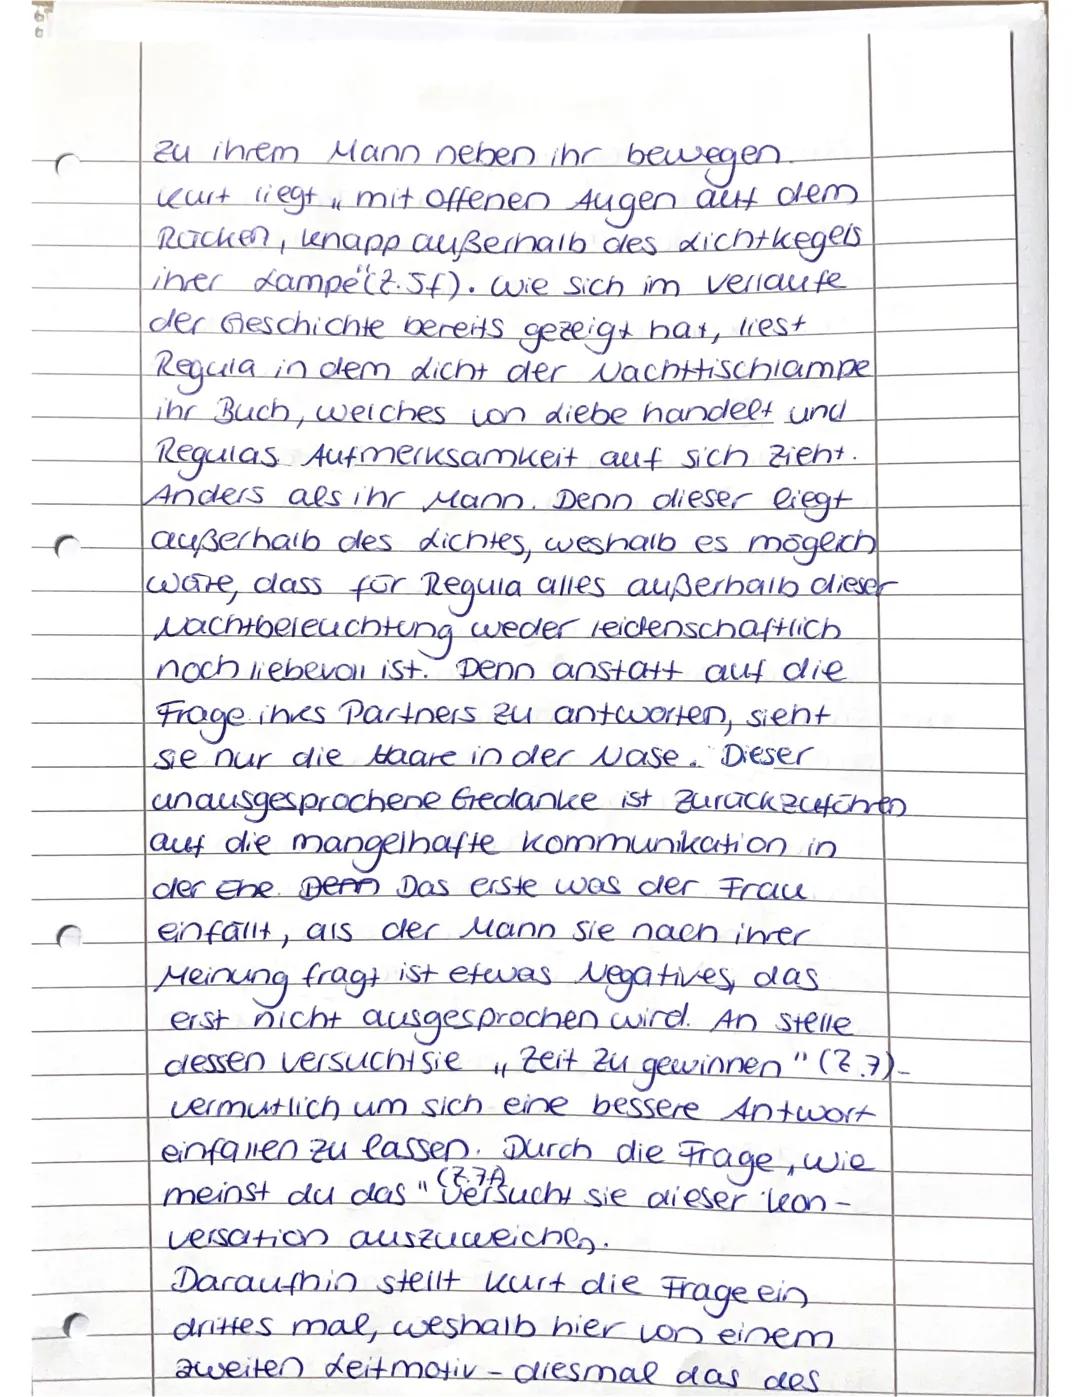 zu ihrem Mann neben ihr bewegen.
Kurt liegt „mit offenen Augen auf dem
Rücken, knapp außerhalb des Lichtkegels
ihrer Lampe"(Z.5f). Wie sich im verlaufe
der Geschichte bereits gezeigt hat, liest
Regula in dem Licht der Nachttischlampe
ihr Buch, welches von Liebe handelt und
Regulas Aufmerksamkeit auf sich zieht.
Anders als ihr Mann. Denn dieser liegt
außerhalb des Lichtes, weshalb es möglich
wäre, dass für Regula alles außerhalb dieser
Nachtbeleuchtung weder leidenschaftlich
noch liebevoll ist. Denn anstatt auf die
Frage ihres Partners zu antworten, sieht
sie nur die Haare in der Nase. Dieser
unausgesprochene Gedanke ist zurückzuführen
auf die mangelhafte Kommunikation in
der Ehe. Denn Das erste was der Frau
einfällt, als der Mann sie nach ihrer
Meinung fragt ist etwas Negatives, das
erst nicht ausgesprochen wird. An stelle
dessen versucht sie „Zeit zu gewinnen" (Z.7)-
vermutlich um sich eine bessere Antwort
einfallen zu lassen. Durch die Frage „wie
meinst du das" (Z.7f) versucht sie dieser Kon-
versation auszuweichen.
Daraufhin stellt Kurt die Frage ein
drittes mal, weshalb hier von einem
zweiten Leitmotiv - diesmal das des